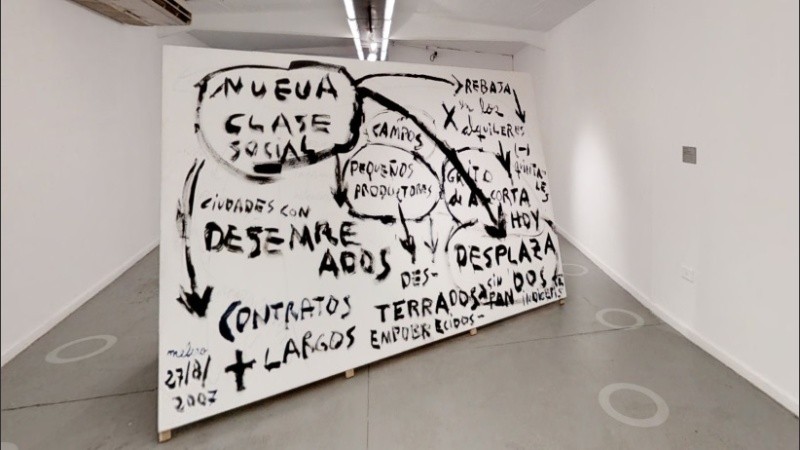 NUEVA
CLASE
SOCIAL
REBAJA
X en los
alquileres
(-)
CAMPOS
PEQUEÑOS
PRODUCTORES
GRITO
de A
CORTA
HOY
CIUDADES CON
DESEMPLE
ADOS
DESPLAZA
DOS
DES-
TERRADOS
sin
PAN
EMPOBRECIDOS-
CONTRATOS
+ LARGOS
27/8/
2007